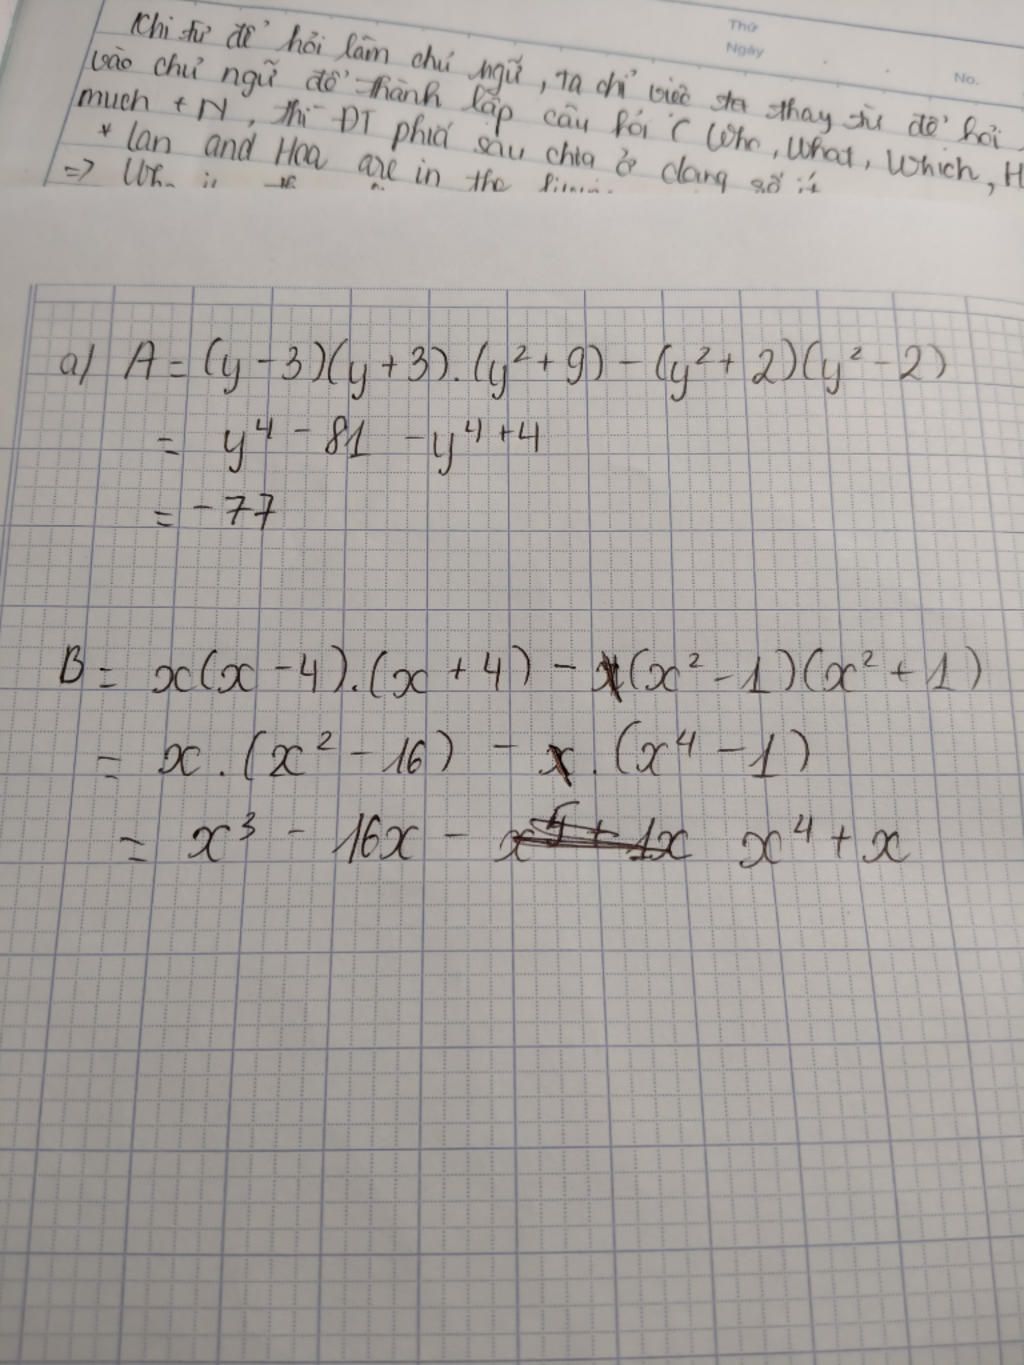 Thứ
Ngày
No.
Khi từ để hỏi làm chủ ngữ, ta chỉ việc thay từ để hỏi
vào chủ ngữ để thành lập câu hỏi ( Who, What, Which, H
much + N, thì ĐT phía sau chia ở dạng số ít
* Lan and Hoa are in the
=>
a) A = (y - 3)(y + 3).(y² + 9) - (y² + 2)(y² - 2)
= y⁴ - 81 - y⁴ + 4
= - 77
B = x(x - 4).(x + 4) - (x² - 1)(x² + 1)
= x.(x² - 16) - x.(x⁴ - 1)
= x³ - 16x - x⁴ + x